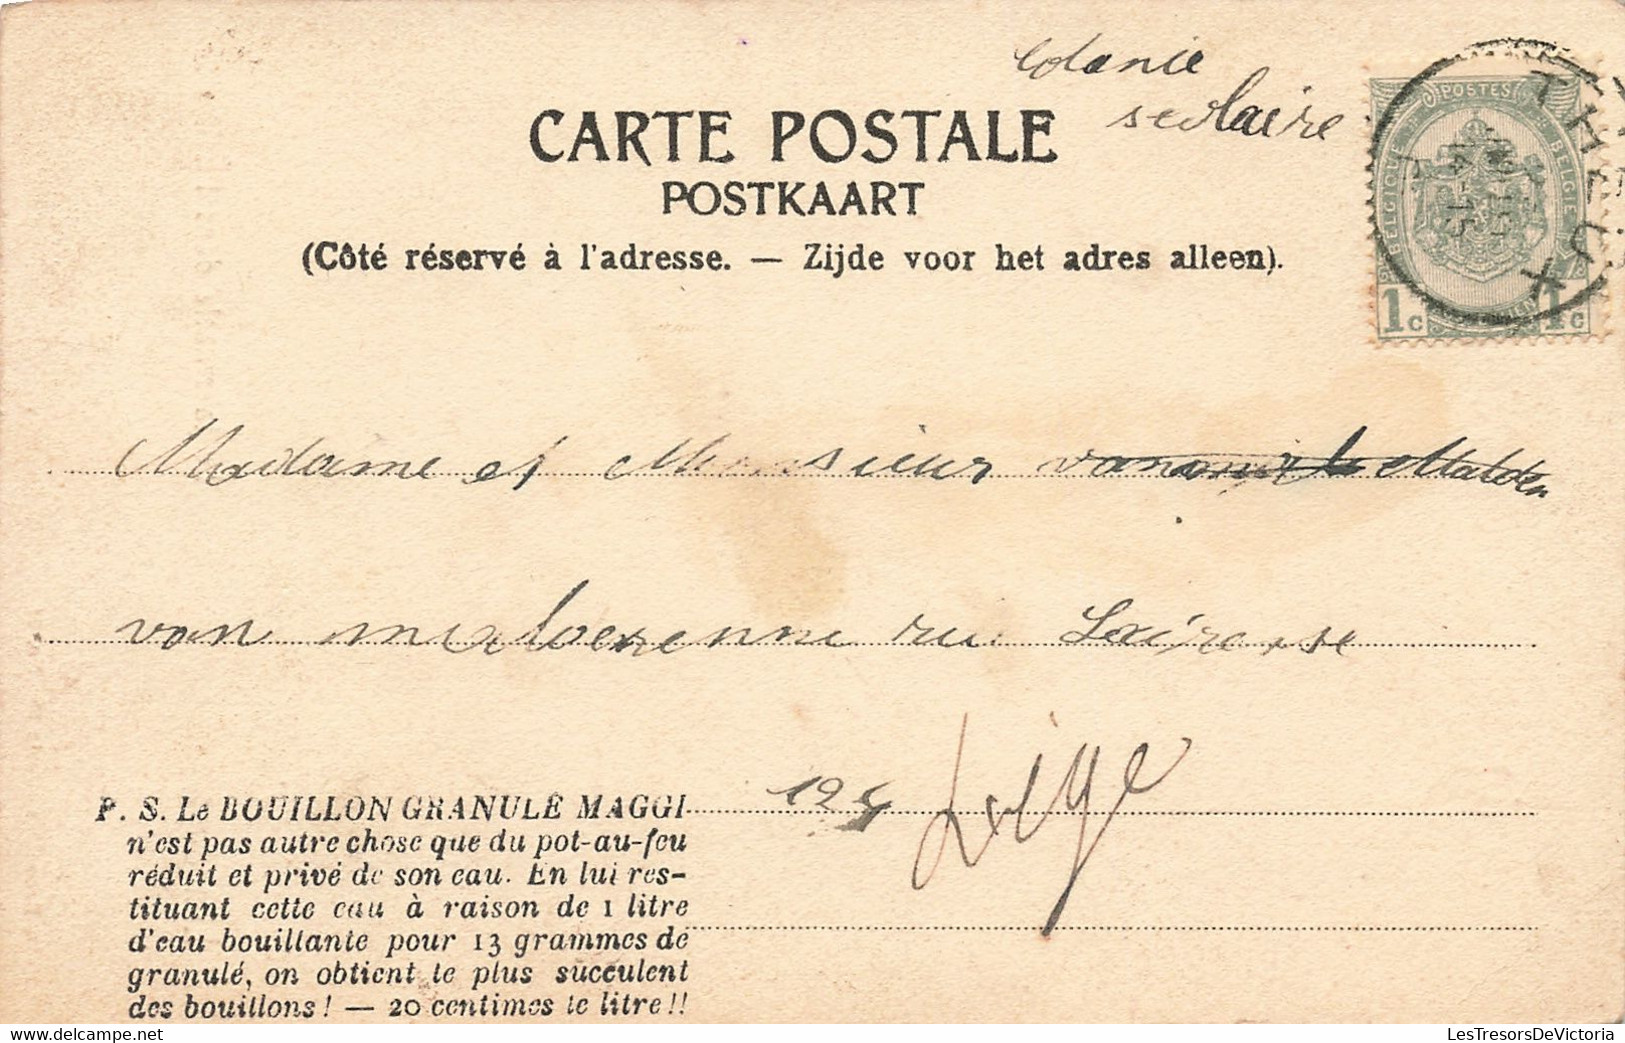 Colonie
scolaire
CARTE POSTALE
POSTKAART
(Côté réservé à l'adresse. — Zijde voor het adres alleen).
POSTES
BELGIQUE BELGIE
1 c 1 c
THEUX
14-15
Madame et Monsieur
van rue Lairesse
124 Liége
P. S. Le BOUILLON GRANULÉ MAGGI
n'est pas autre chose que du pot-au-feu
réduit et privé de son eau. En lui res-
tituant cette eau à raison de 1 litre
d'eau bouillante pour 13 grammes de
granulé, on obtient le plus succulent
des bouillons ! — 20 centimes le litre !!
LesTresorsDeVictoria